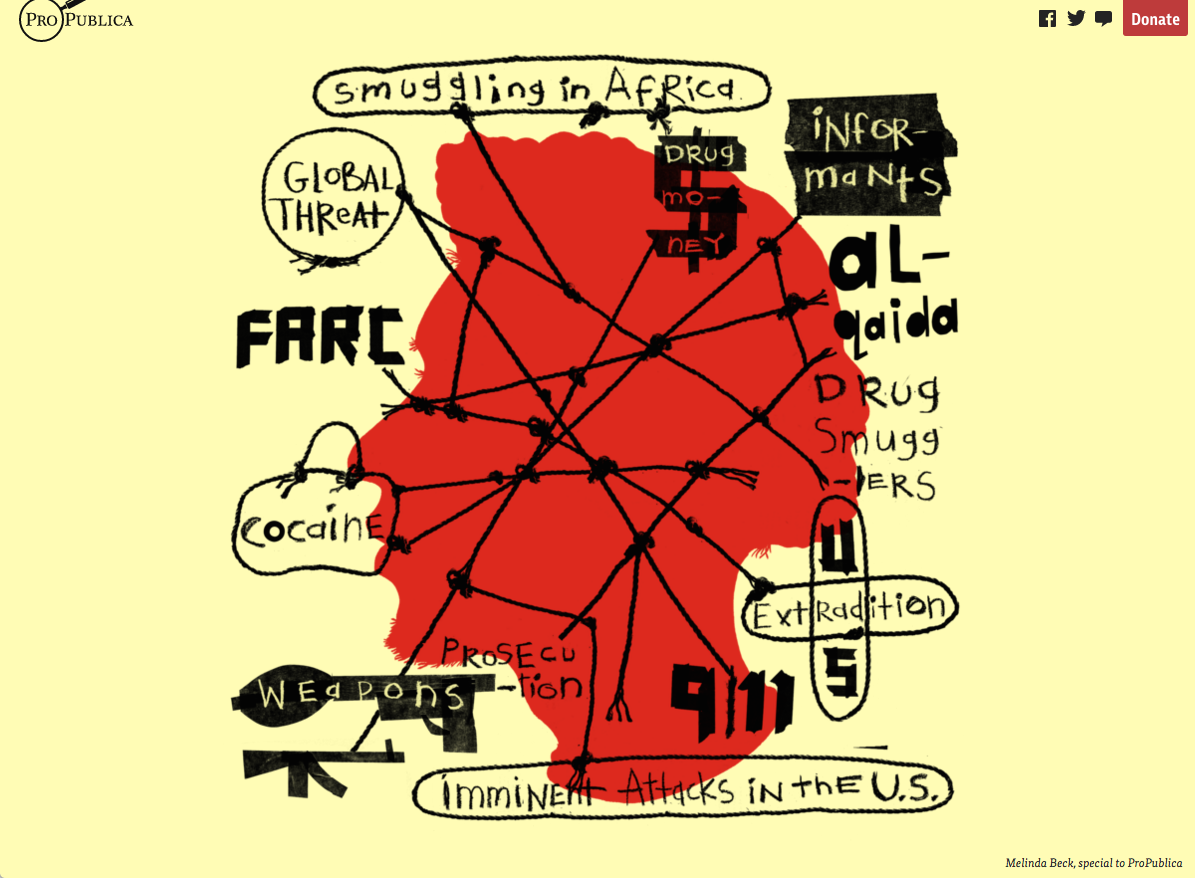 PROPUBLICA
Donate
Smuggling in AfRica
GLOBAL
THReAt
DRUg
mo-
neY
iNfoR-
maNtS
aL-
qaida
FARC
DRug
Smugg
-lERS
cocaiNE
U
S
ExtRadition
PRoSECu
-tion
WEapons
9/11
imminent Attacks iN thE U.S.
Melinda Beck, special to ProPublica